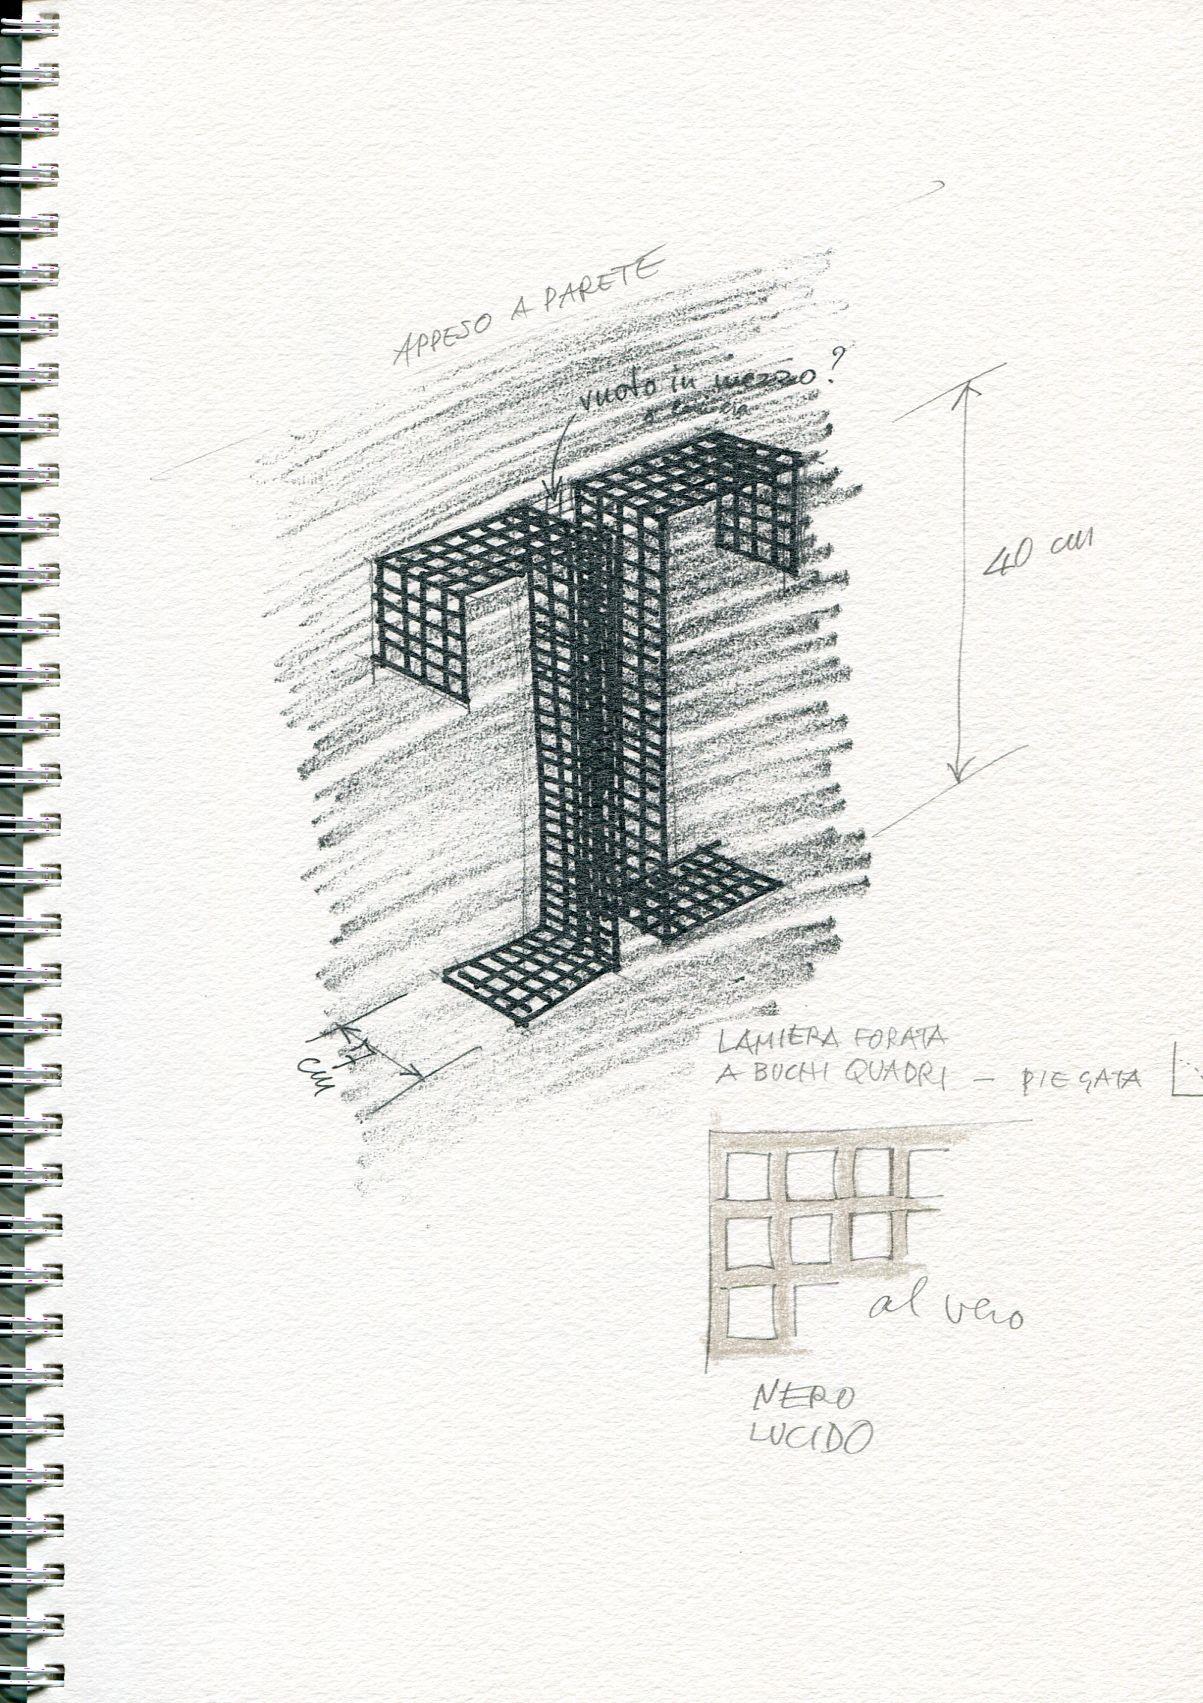 APPESO A PARETE
vuoto in mezzo?
40 cm
cm
LAMIERA FORATA
A BUCHI QUADRI - PIEGATA
al vero
NERO
LUCIDO